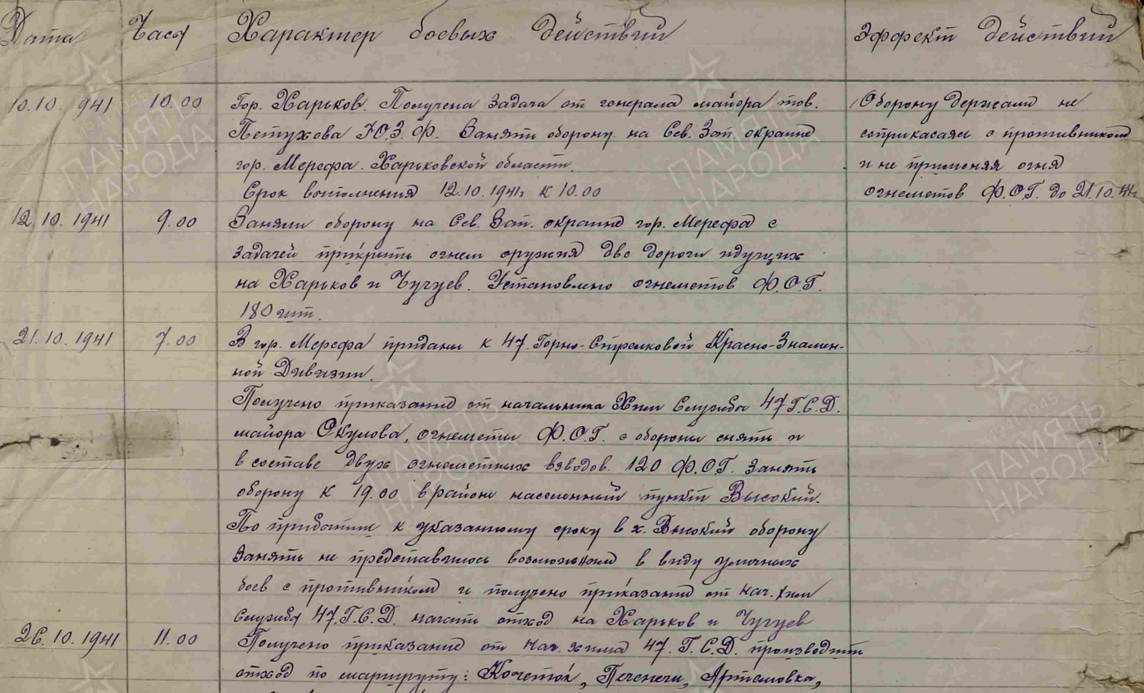 Дата Часы Характер боевых действий Эффект действий
10.10. 1941 10.00 Гор. Харьков. Получена задача от генерала майора тов. Оборону держали не
Петухова Ю.З.Ф. Занять оборону на Сев. Зап. окраине соприкасаясь с противником
гор. Мерефа. Харьковской области. и не применяя огня
Срок выполнения 12.10.1941г к 10.00 огнеметов Ф.О.Г. до 21.10.41г.
12.10.1941 9.00 Заняли оборону на Сев. Зап. окраине гор. Мерефа с
задачей прикрыть огнем оружия две дороги идущих
на Харьков и Чугуев. Установлено огнеметов Ф.О.Г.
180 шт.
21.10.1941 7.00 В гор. Мерефа приданы к 47. Горно-Стрелковой Красно-Знамен-
ной Дивизии.
Получено приказание от начальника Хим Службы 47 Г.С.Д.
майора Окулова, огнеметы Ф.О.Г. с обороны снять и
в составе двух огнеметных взводов. 120 Ф.О.Г. Занять
оборону к 19.00 в районе населенный пункт Высокий.
По прибытии к указанному сроку в х. Высокий оборону
занять не представилось возможным в виду уличных
боев с противником и получено приказание от нач. хим
службы 47.Г.С.Д. начать отход на Харьков и Чугуев
26.10.1941 11.00 Получено приказание от нач. хима 47. Г.С.Д. производить
отход по маршруту: Кочеток, Печенеги, Артемовка,
ПАМЯТЬ НАРОДА
ПАМЯТЬ НАРОДА
ПАМЯТЬ НАРОДА
ПАМЯТЬ НАРОДА